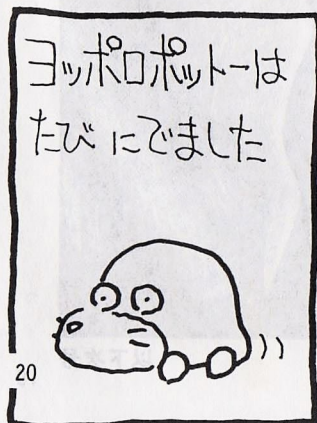 ヨッポロポットーは
たび にでました
20